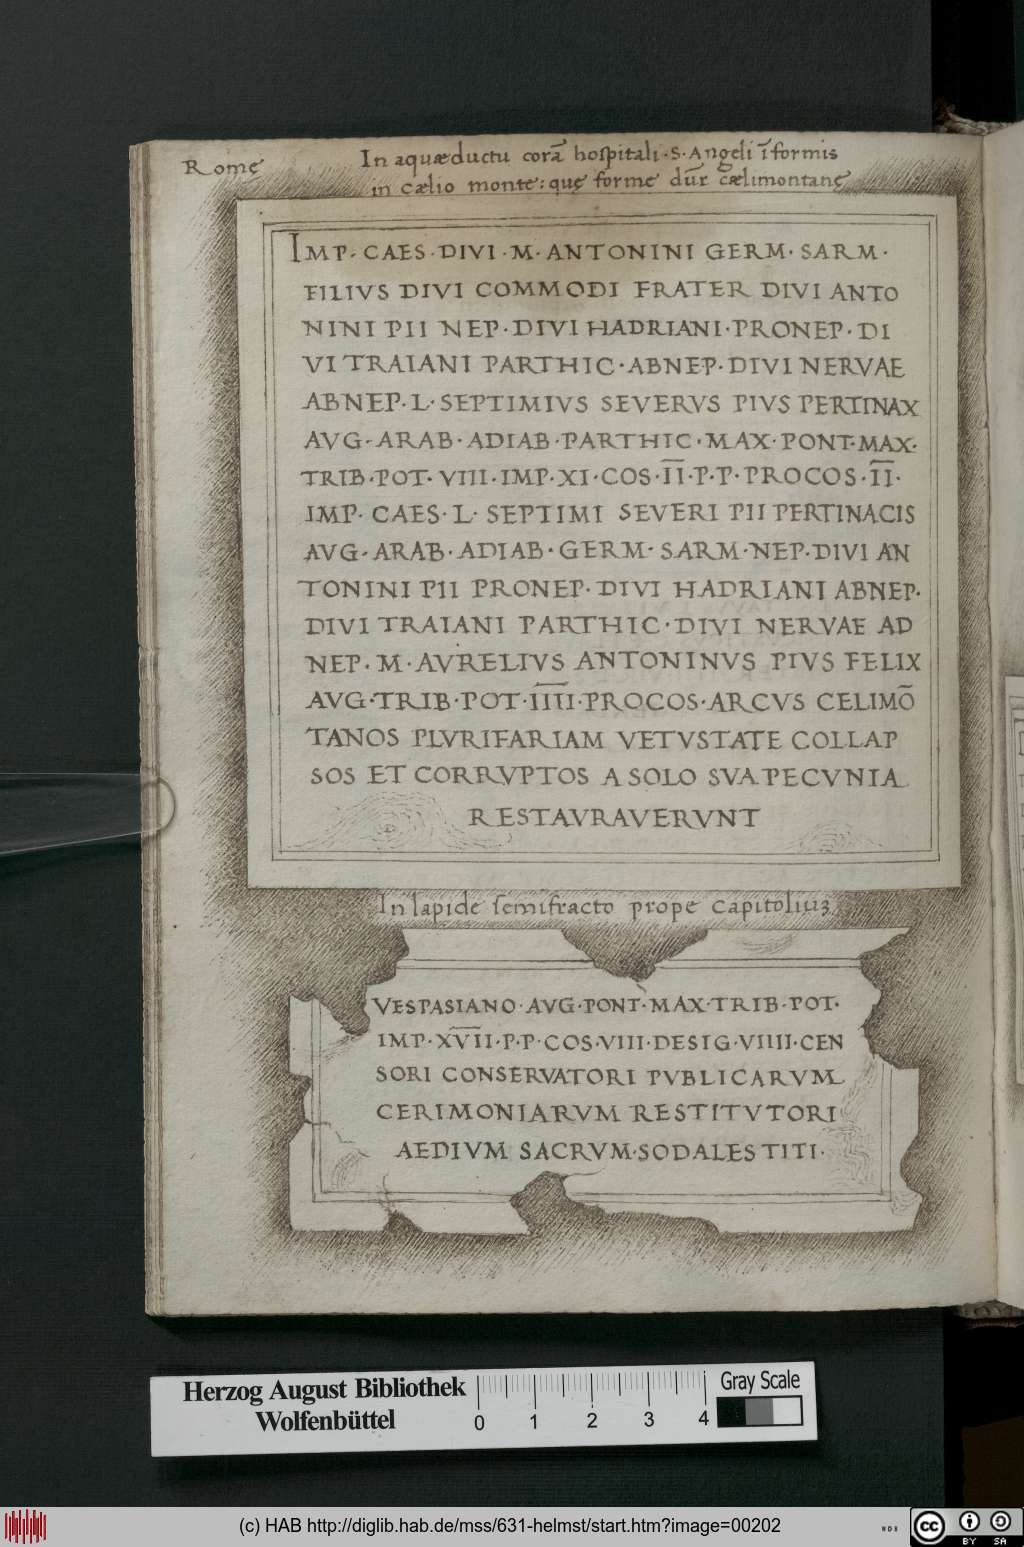 Romę
In aquæductu corā hospitali·S·Angeli ī formis
in cælio monte: quę formę dūr cælimontanę
IMP· CAES·DIVI·M·ANTONINI GERM·SARM·
FILIVS DIVI COMMODI FRATER DIVI ANTO
NINI PII NEP·DIVI HADRIANI·PRONEP·DI
VI TRAIANI PARTHIC·ABNEP·DIVI NERVAE
ABNEP·L·SEPTIMIVS SEVERVS PIVS PERTINAX
AVG·ARAB·ADIAB·PARTHIC·MAX·PONT·MAX·
TRIB·POT·VIII·IMP·XI·COS·I̅I̅·P·P·PROCOS·I̅I̅·
IMP·CAES·L·SEPTIMI SEVERI PII PERTINACIS
AVG·ARAB·ADIAB·GERM·SARM·NEP·DIVI AN
TONINI PII PRONEP·DIVI HADRIANI ABNEP·
DIVI TRAIANI PARTHIC·DIVI NERVAE AD
NEP·M·AVRELIVS ANTONINVS PIVS FELIX
AVG·TRIB·POT·I̅I̅I̅I̅·PROCOS·ARCVS CELIMŌ
TANOS PLVRIFARIAM VETVSTATE COLLAP
SOS ET CORRVPTOS A SOLO SVA PECVNIA
RESTAVRAVERVNT
In lapide semifracto prope Capitoliuꝫ
VESPASIANO·AVG·PONT·MAX·TRIB·POT·
IMP·X̅V̅I̅I̅·P·P·COS·VIII·DESIG·VIIII·CEN
SORI CONSERVATORI PVBLICARVM
CERIMONIARVM RESTITVTORI
AEDIVM SACRVM·SODALES TITI·
Herzog August Bibliothek
Wolfenbüttel
0 1 2 3 4
Gray Scale
(c) HAB http://diglib.hab.de/mss/631-helmst/start.htm?image=00202
WDB
cc
BY SA